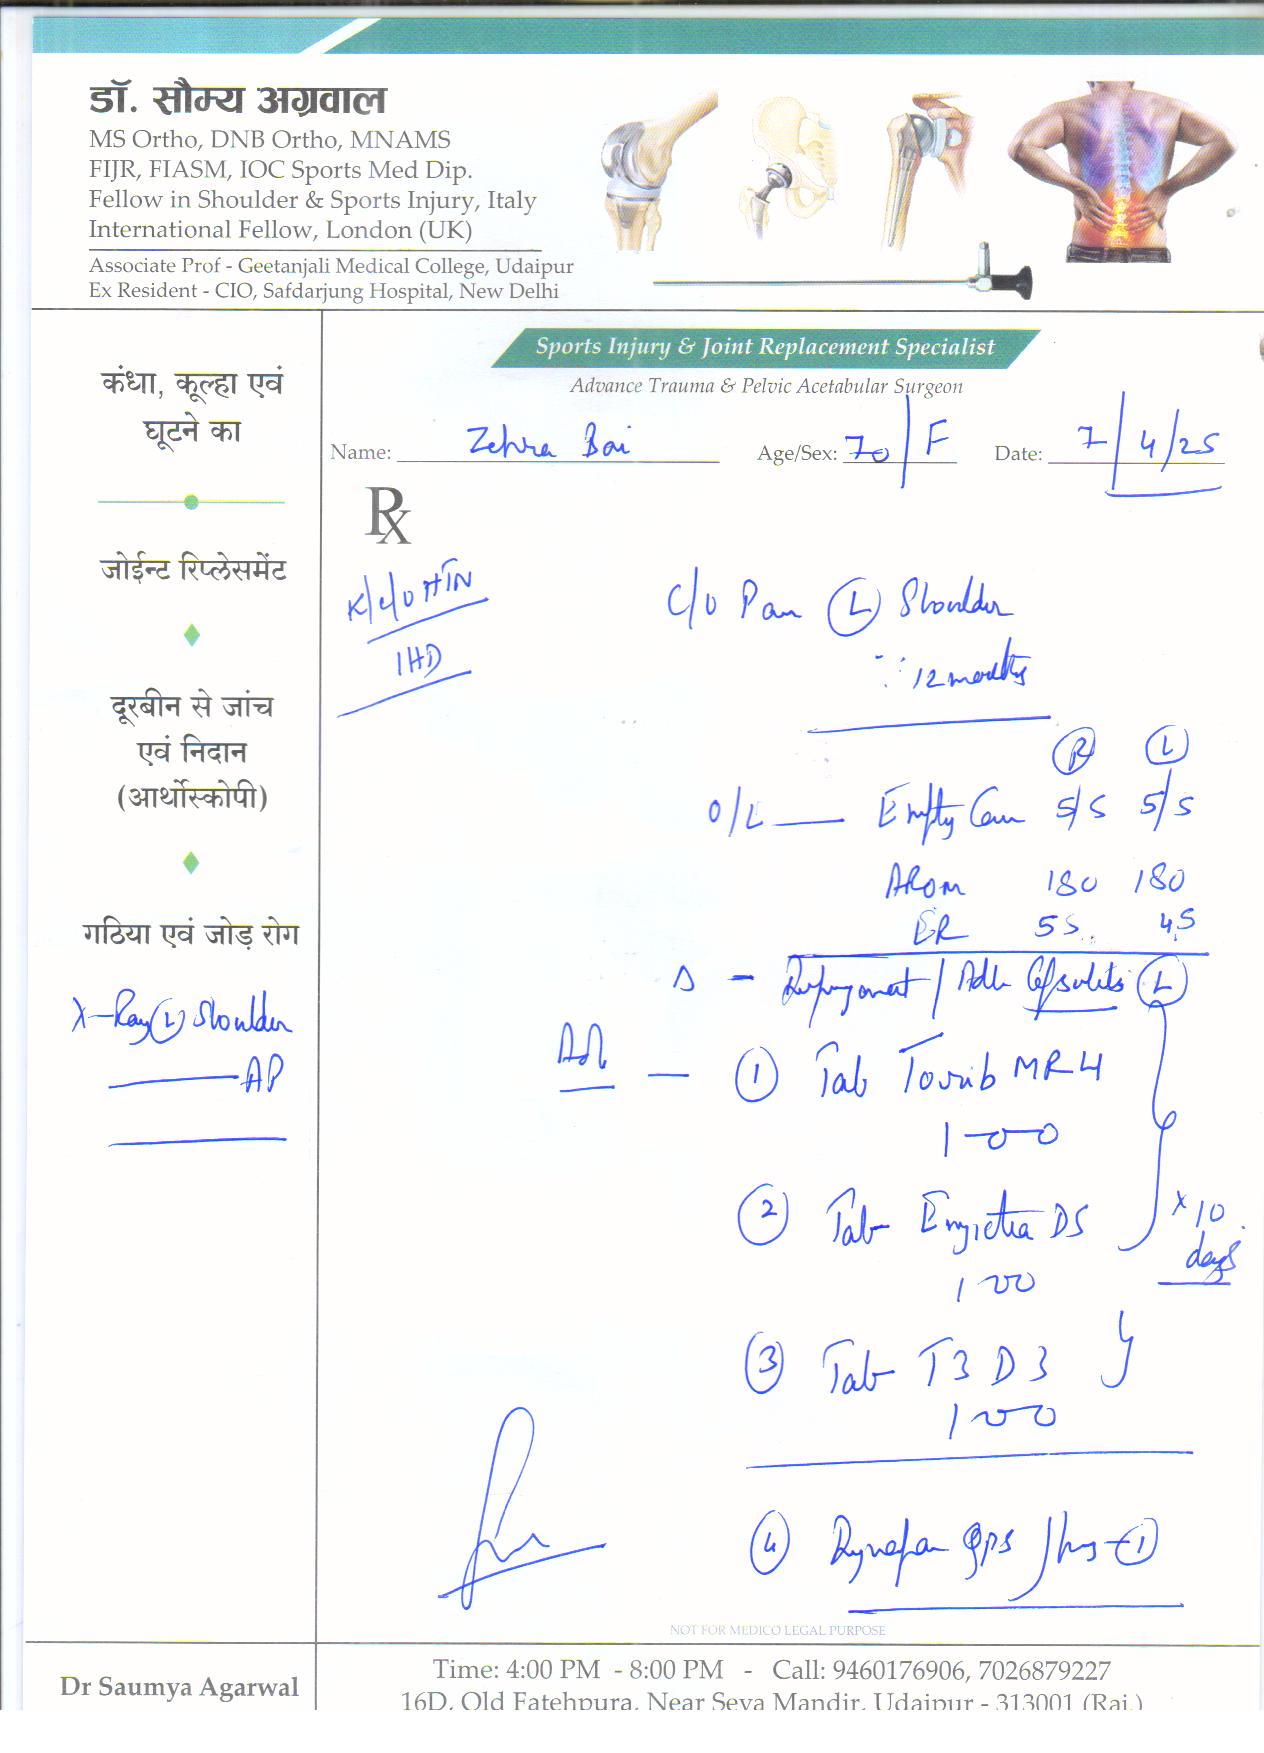 डॉ. सौम्य अग्रवाल
MS Ortho, DNB Ortho, MNAMS
FIJR, FIASM, IOC Sports Med Dip.
Fellow in Shoulder & Sports Injury, Italy
International Fellow, London (UK)
Associate Prof - Geetanjali Medical College, Udaipur
Ex Resident - CIO, Safdarjung Hospital, New Delhi
Sports Injury & Joint Replacement Specialist
Advance Trauma & Pelvic Acetabular Surgeon
Name: Zehra Bai Age/Sex: 70/F Date: 7/4/25
कंधा, कूल्हा एवं
घूटने का
जोईन्ट रिप्लेसमेंट
दूरबीन से जांच
एवं निदान
(आर्थोस्कोपी)
गठिया एवं जोड़ रोग
X-Ray (L) Shoulder
AP
Rx
K/C/O HTN
IHD
C/O Pain (L) Shoulder
12 months
(R) (L)
O/E Empty Can 5/5 5/5
AROM 180 180
ER 55 45
Δ - / Adh Capsulitis (L)
(1) Tab MR 4
1-0-0
(2) Tab DS
1 0 0
x 10
days
(3) Tab T3 D3
1 0 0
(4) Dynapar QPS (1)
NOT FOR MEDICO LEGAL PURPOSE
Dr Saumya Agarwal
Time: 4:00 PM - 8:00 PM - Call: 9460176906, 7026879227
16D, Old Fatehpura, Near Seva Mandir, Udaipur - 313001 (Raj.)